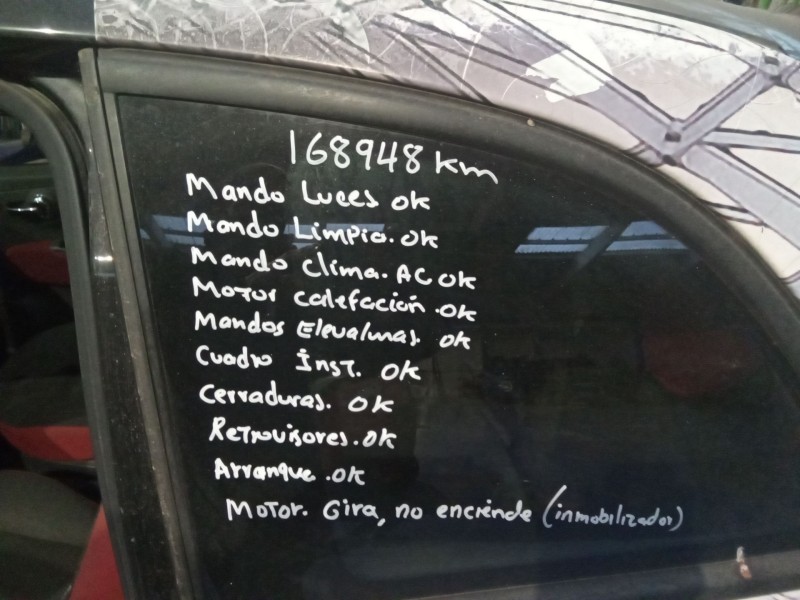 168948 km
Mando Luces ok
Mando Limpia. ok
Mando clima. AC OK
Motor calefacion .ok
Mandos Elevalunas. ok
Cuadro Inst. OK
Cerraduras. OK
Retrovisores. OK
Arranque .OK
Motor. Gira, no enciende (inmobilizador)